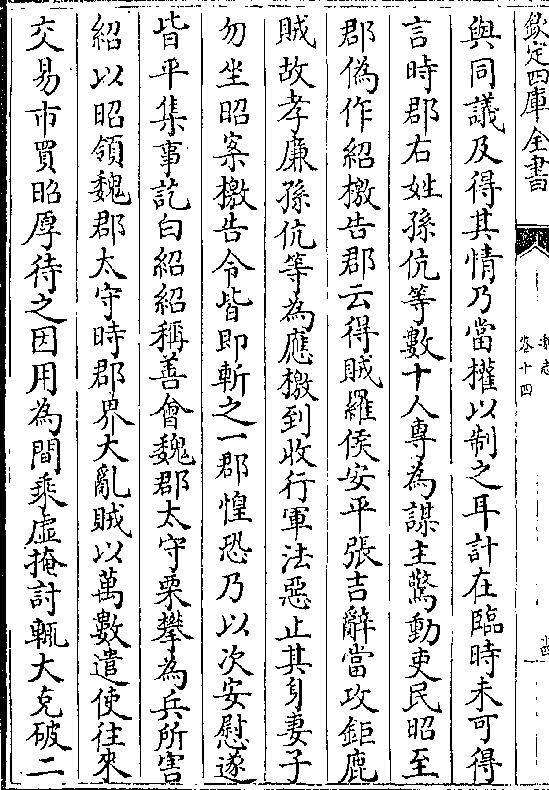 欽定四庫全書
魏志
卷十四
與同議及得其情乃當權以制之耳計在臨時未可得
言時郡右姓孫伉等數十人專為謀主驚動吏民昭至
郡偽作紹檄告郡云得賊羅候安平張吉辭當攻鉅鹿
賊故孝廉孫伉等為應檄到收行軍法惡止其身妻子
勿坐昭案檄告令皆即斬之一郡惶恐乃以次安慰遂
皆平集事訖白紹紹稱善會魏郡太守栗攀為兵所害
紹以昭領魏郡太守時郡界大亂賊以萬數遣使往來
交易市買昭厚待之因用為間乘虛掩討輒大克破二